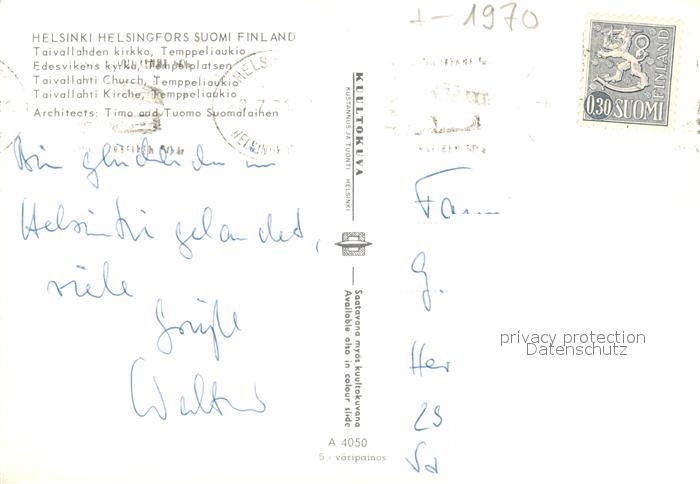 1970
HELSINKI HELSINGFORS SUOMI FINLAND
Taivallahden kirkko, Temppeliaukio
Edesvikens kyrka, Tempelplatsen
Taivallahti Church, Temppeliaukio
Taivallahti Kirche, Temppeliaukio
Architects: Timo and Tuomo Suomalainen
Bin glücklich in
Helsinki gelandet,
viele
Grüße
Walter
KUULTOKUVA
KUSTANNUS JA TUONTI HELSINKI
Saatavana myös kuultokuvana
Available also in colour slide
A 4050
5 - väripainos
FINLAND
0,30 SUOMI
HELSINKI
G.
privacy protection
Datenschutz